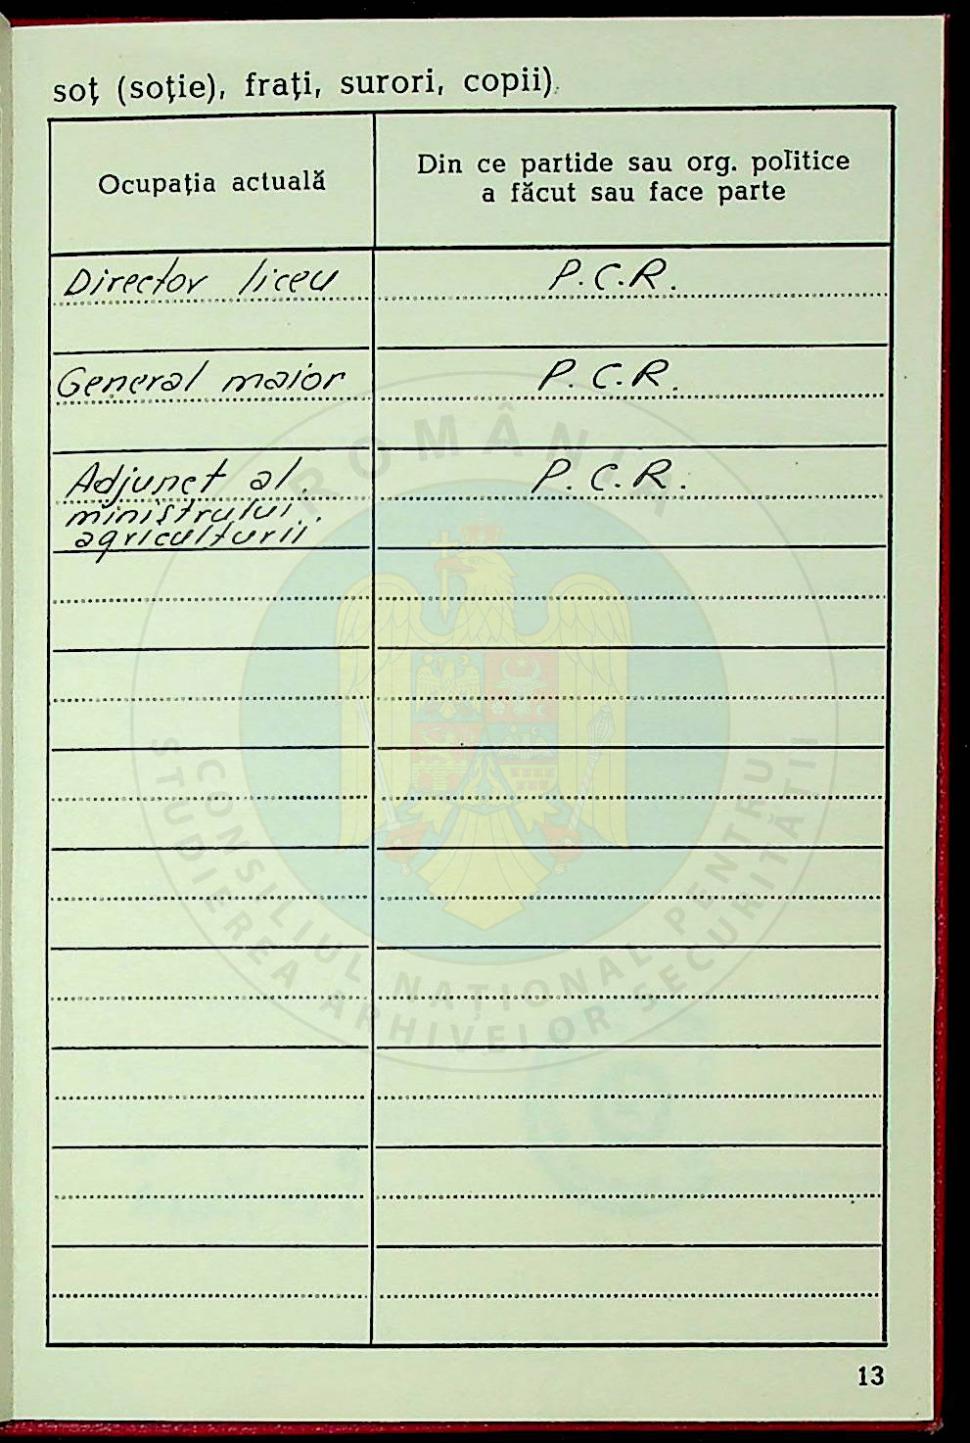 soț (soție), frați, surori, copii).
Ocupația actuală
Din ce partide sau org. politice
a făcut sau face parte
Director liceu
P.C.R.
General maior
P.C.R.
Adjunct al
ministrului
agriculturii
P.C.R.
ROMÂNIA
CONSILIUL NAȚIONAL PENTRU
STUDIEREA ARHIVELOR SECURITĂȚII
13